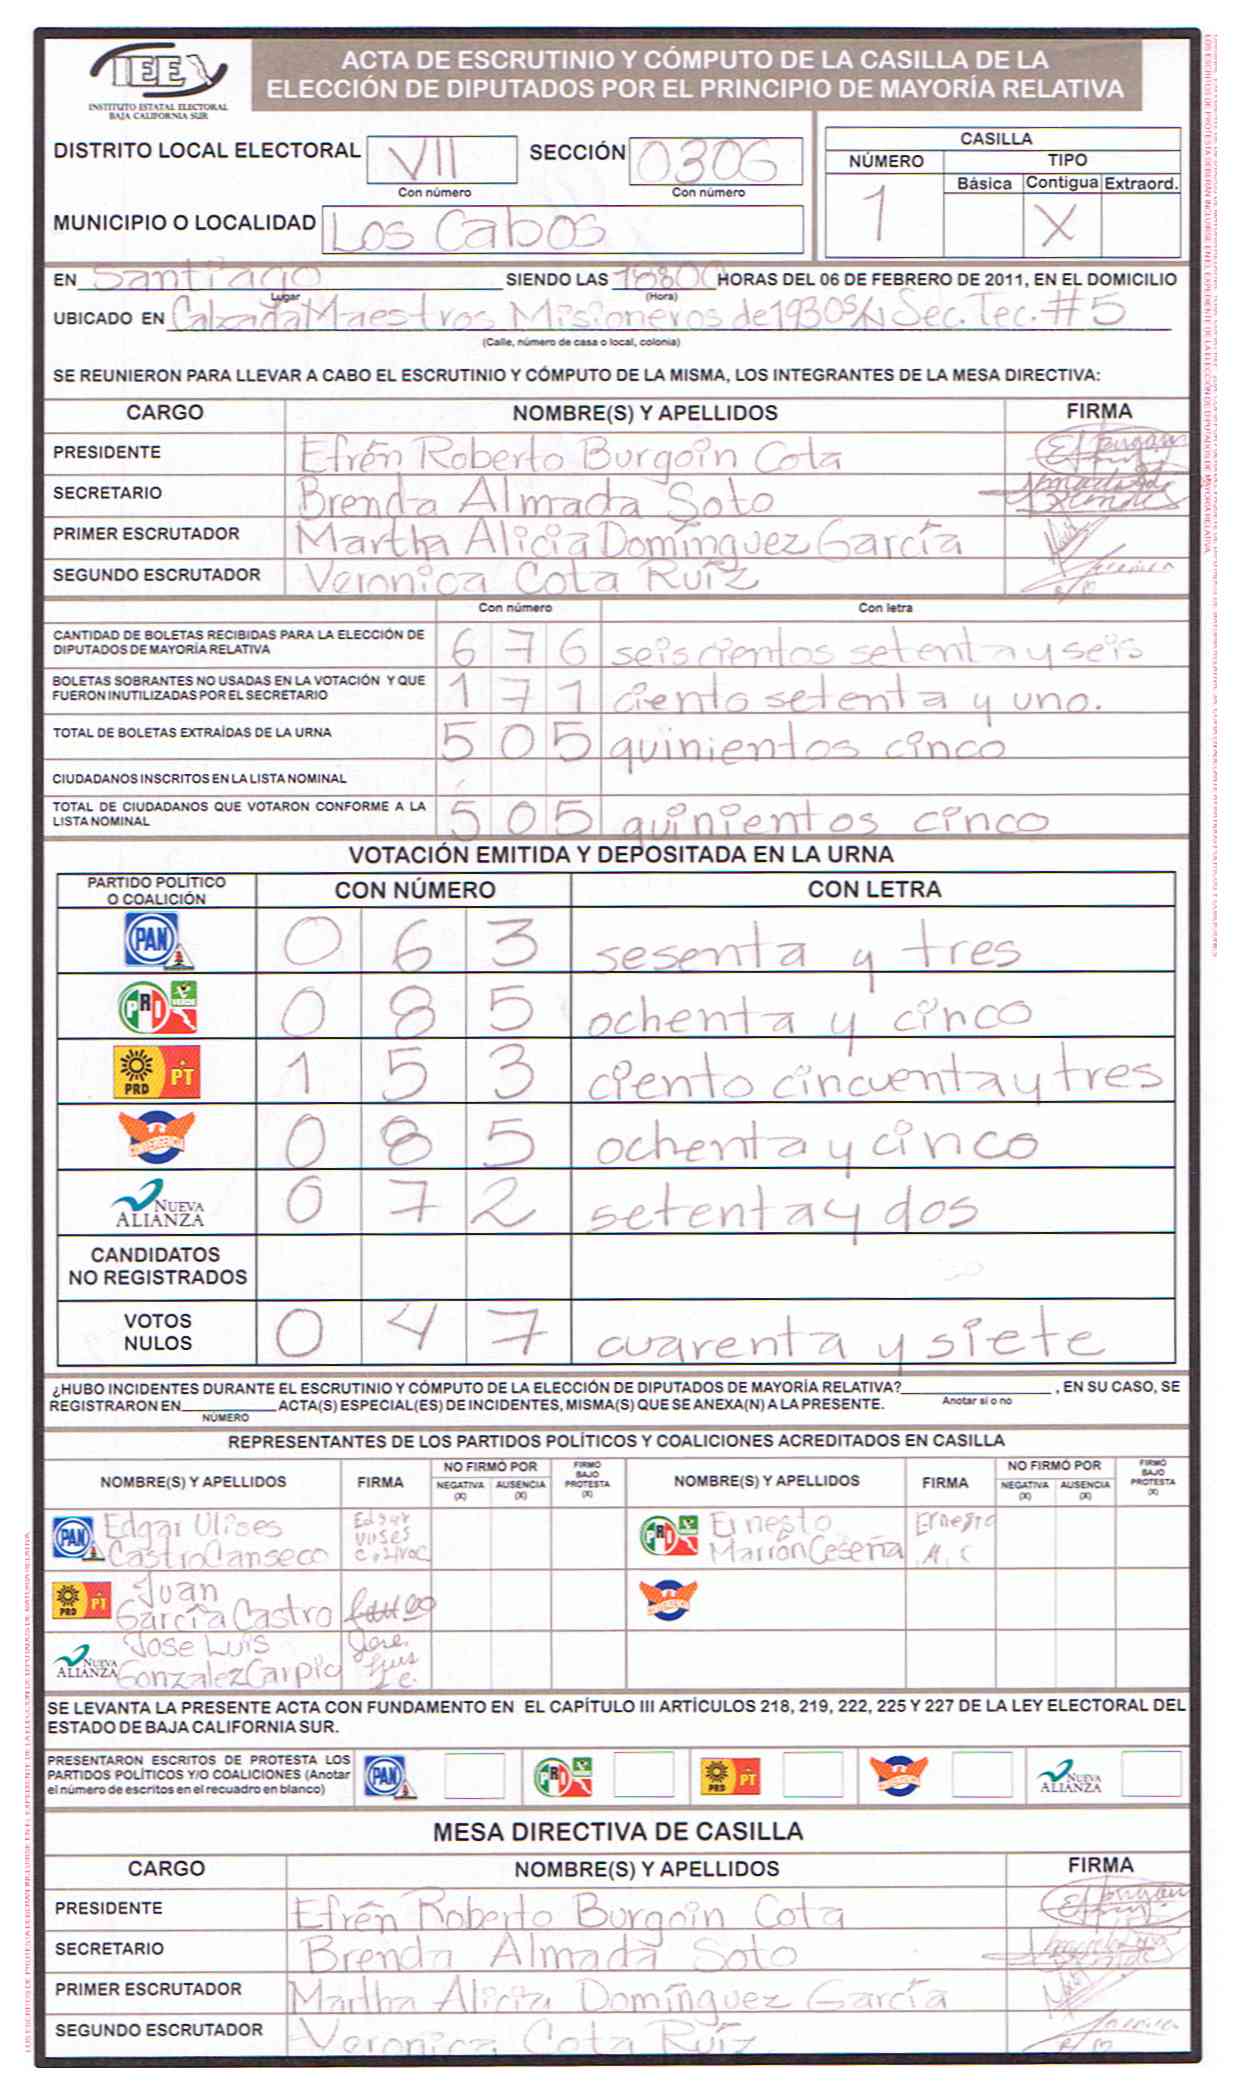 IEE
INSTITUTO ESTATAL ELECTORAL
BAJA CALIFORNIA SUR
ACTA DE ESCRUTINIO Y CÓMPUTO DE LA CASILLA DE LA
ELECCIÓN DE DIPUTADOS POR EL PRINCIPIO DE MAYORÍA RELATIVA
DISTRITO LOCAL ELECTORAL VII SECCIÓN 0306
Con número Con número
MUNICIPIO O LOCALIDAD Los Cabos
CASILLA
NÚMERO TIPO
Básica Contigua Extraord.
1 X
EN Santiago SIENDO LAS HORAS DEL 06 DE FEBRERO DE 2011, EN EL DOMICILIO
Lugar (Hora)
UBICADO EN Calzada Maestros Misioneros de 1930 S/N Sec. Tec. #5
(Calle, número de casa o local, colonia)
SE REUNIERON PARA LLEVAR A CABO EL ESCRUTINIO Y CÓMPUTO DE LA MISMA, LOS INTEGRANTES DE LA MESA DIRECTIVA:
CARGO NOMBRE(S) Y APELLIDOS FIRMA
PRESIDENTE Efrén Roberto Burgoin Cota
SECRETARIO Brenda Almada Soto
PRIMER ESCRUTADOR Martha Alicia Domínguez García
SEGUNDO ESCRUTADOR Veronica Cota Ruíz
Con número Con letra
CANTIDAD DE BOLETAS RECIBIDAS PARA LA ELECCIÓN DE
DIPUTADOS DE MAYORÍA RELATIVA 6 7 6 seiscientos setenta y seis
BOLETAS SOBRANTES NO USADAS EN LA VOTACIÓN Y QUE
FUERON INUTILIZADAS POR EL SECRETARIO 1 7 1 ciento setenta y uno.
TOTAL DE BOLETAS EXTRAÍDAS DE LA URNA 5 0 5 quinientos cinco
CIUDADANOS INSCRITOS EN LA LISTA NOMINAL
TOTAL DE CIUDADANOS QUE VOTARON CONFORME A LA
LISTA NOMINAL 5 0 5 quinientos cinco
VOTACIÓN EMITIDA Y DEPOSITADA EN LA URNA
PARTIDO POLÍTICO
O COALICIÓN CON NÚMERO CON LETRA
PAN 0 6 3 sesenta y tres
PRI VERDE 0 8 5 ochenta y cinco
PRD PT 1 5 3 ciento cincuenta y tres
CONVERGENCIA 0 8 5 ochenta y cinco
NUEVA ALIANZA 0 7 2 setenta y dos
CANDIDATOS
NO REGISTRADOS
VOTOS
NULOS 0 4 7 cuarenta y siete
¿HUBO INCIDENTES DURANTE EL ESCRUTINIO Y CÓMPUTO DE LA ELECCIÓN DE DIPUTADOS DE MAYORÍA RELATIVA? , EN SU CASO, SE
Anotar si o no
REGISTRARON EN ACTA(S) ESPECIAL(ES) DE INCIDENTES, MISMA(S) QUE SE ANEXA(N) A LA PRESENTE.
NÚMERO
REPRESENTANTES DE LOS PARTIDOS POLÍTICOS Y COALICIONES ACREDITADOS EN CASILLA
NOMBRE(S) Y APELLIDOS FIRMA NO FIRMÓ POR NEGATIVA (X) AUSENCIA (X) FIRMÓ BAJO PROTESTA (X) NOMBRE(S) Y APELLIDOS FIRMA NO FIRMÓ POR NEGATIVA (X) AUSENCIA (X) FIRMÓ BAJO PROTESTA (X)
PAN Edgar Ulises Castro Canseco
PRI VERDE Ernesto Marrón Ceseña Ernesto M. C
PRD PT Juan García Castro
CONVERGENCIA
NUEVA ALIANZA Jose Luis Gonzalez Carpio Jose Luis
SE LEVANTA LA PRESENTE ACTA CON FUNDAMENTO EN EL CAPÍTULO III ARTÍCULOS 218, 219, 222, 225 Y 227 DE LA LEY ELECTORAL DEL
ESTADO DE BAJA CALIFORNIA SUR.
PRESENTARON ESCRITOS DE PROTESTA LOS
PARTIDOS POLÍTICOS Y/O COALICIONES (Anotar
el número de escritos en el recuadro en blanco)
PAN PRI PRD PT CONVERGENCIA NUEVA ALIANZA
MESA DIRECTIVA DE CASILLA
CARGO NOMBRE(S) Y APELLIDOS FIRMA
PRESIDENTE Efrén Roberto Burgoin Cota
SECRETARIO Brenda Almada Soto
PRIMER ESCRUTADOR Martha Alicia Domínguez García
SEGUNDO ESCRUTADOR Veronica Cota Ruíz